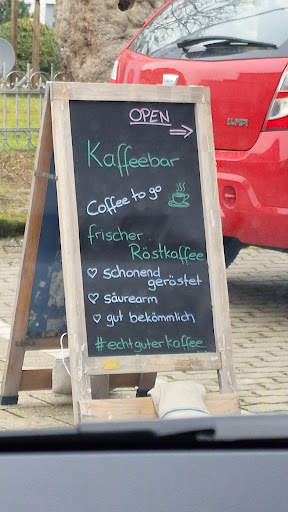 OPEN
Kaffeebar
Coffee to go
frischer
Röstkaffee
schonend
geröstet
säurearm
gut bekömmlich
#echtguterkaffee